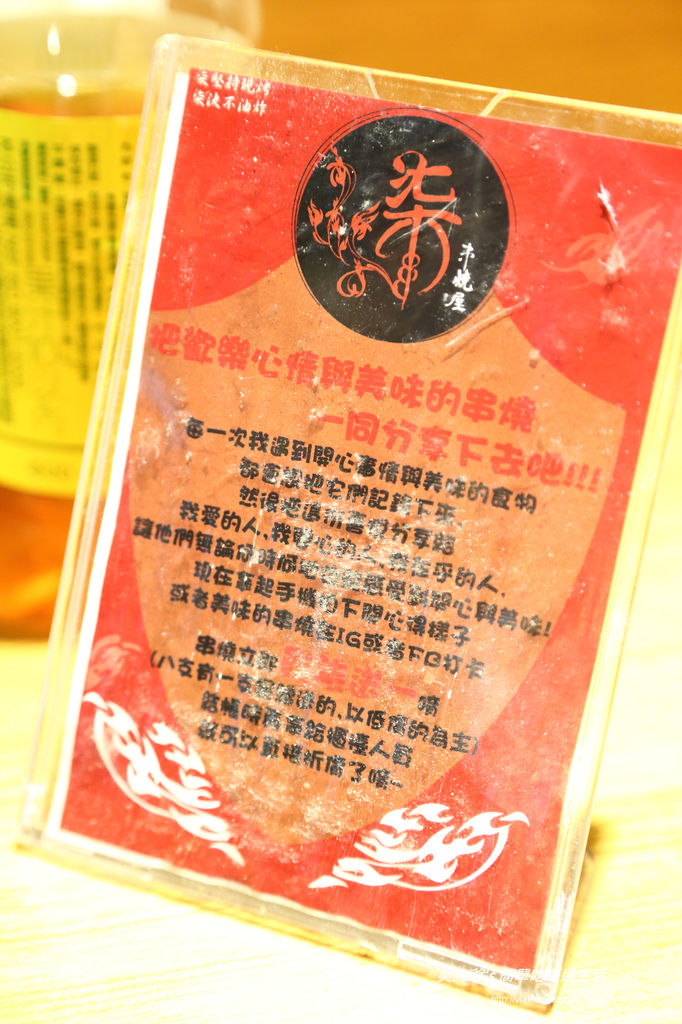 柒堅持現烤
柒決不油炸
柒
串燒屋
把歡樂心情與美味的串燒
一同分享下去吧!!!
每一次我遇到開心事情與美味的食物
都會想把它們記錄下來,
然後把這所有都分享給
我愛的人,我關心的人,我在乎的人,
讓他們無論何時何地都能感受到開心與美味!
現在拿起手機拍下開心得樣子
或者美味的串燒在IG或者FB打卡
串燒立即 送一 唷
(八支有一支 送的,以低價的為主)
結帳時 給櫃檯人員
就可以直接折價了唷~